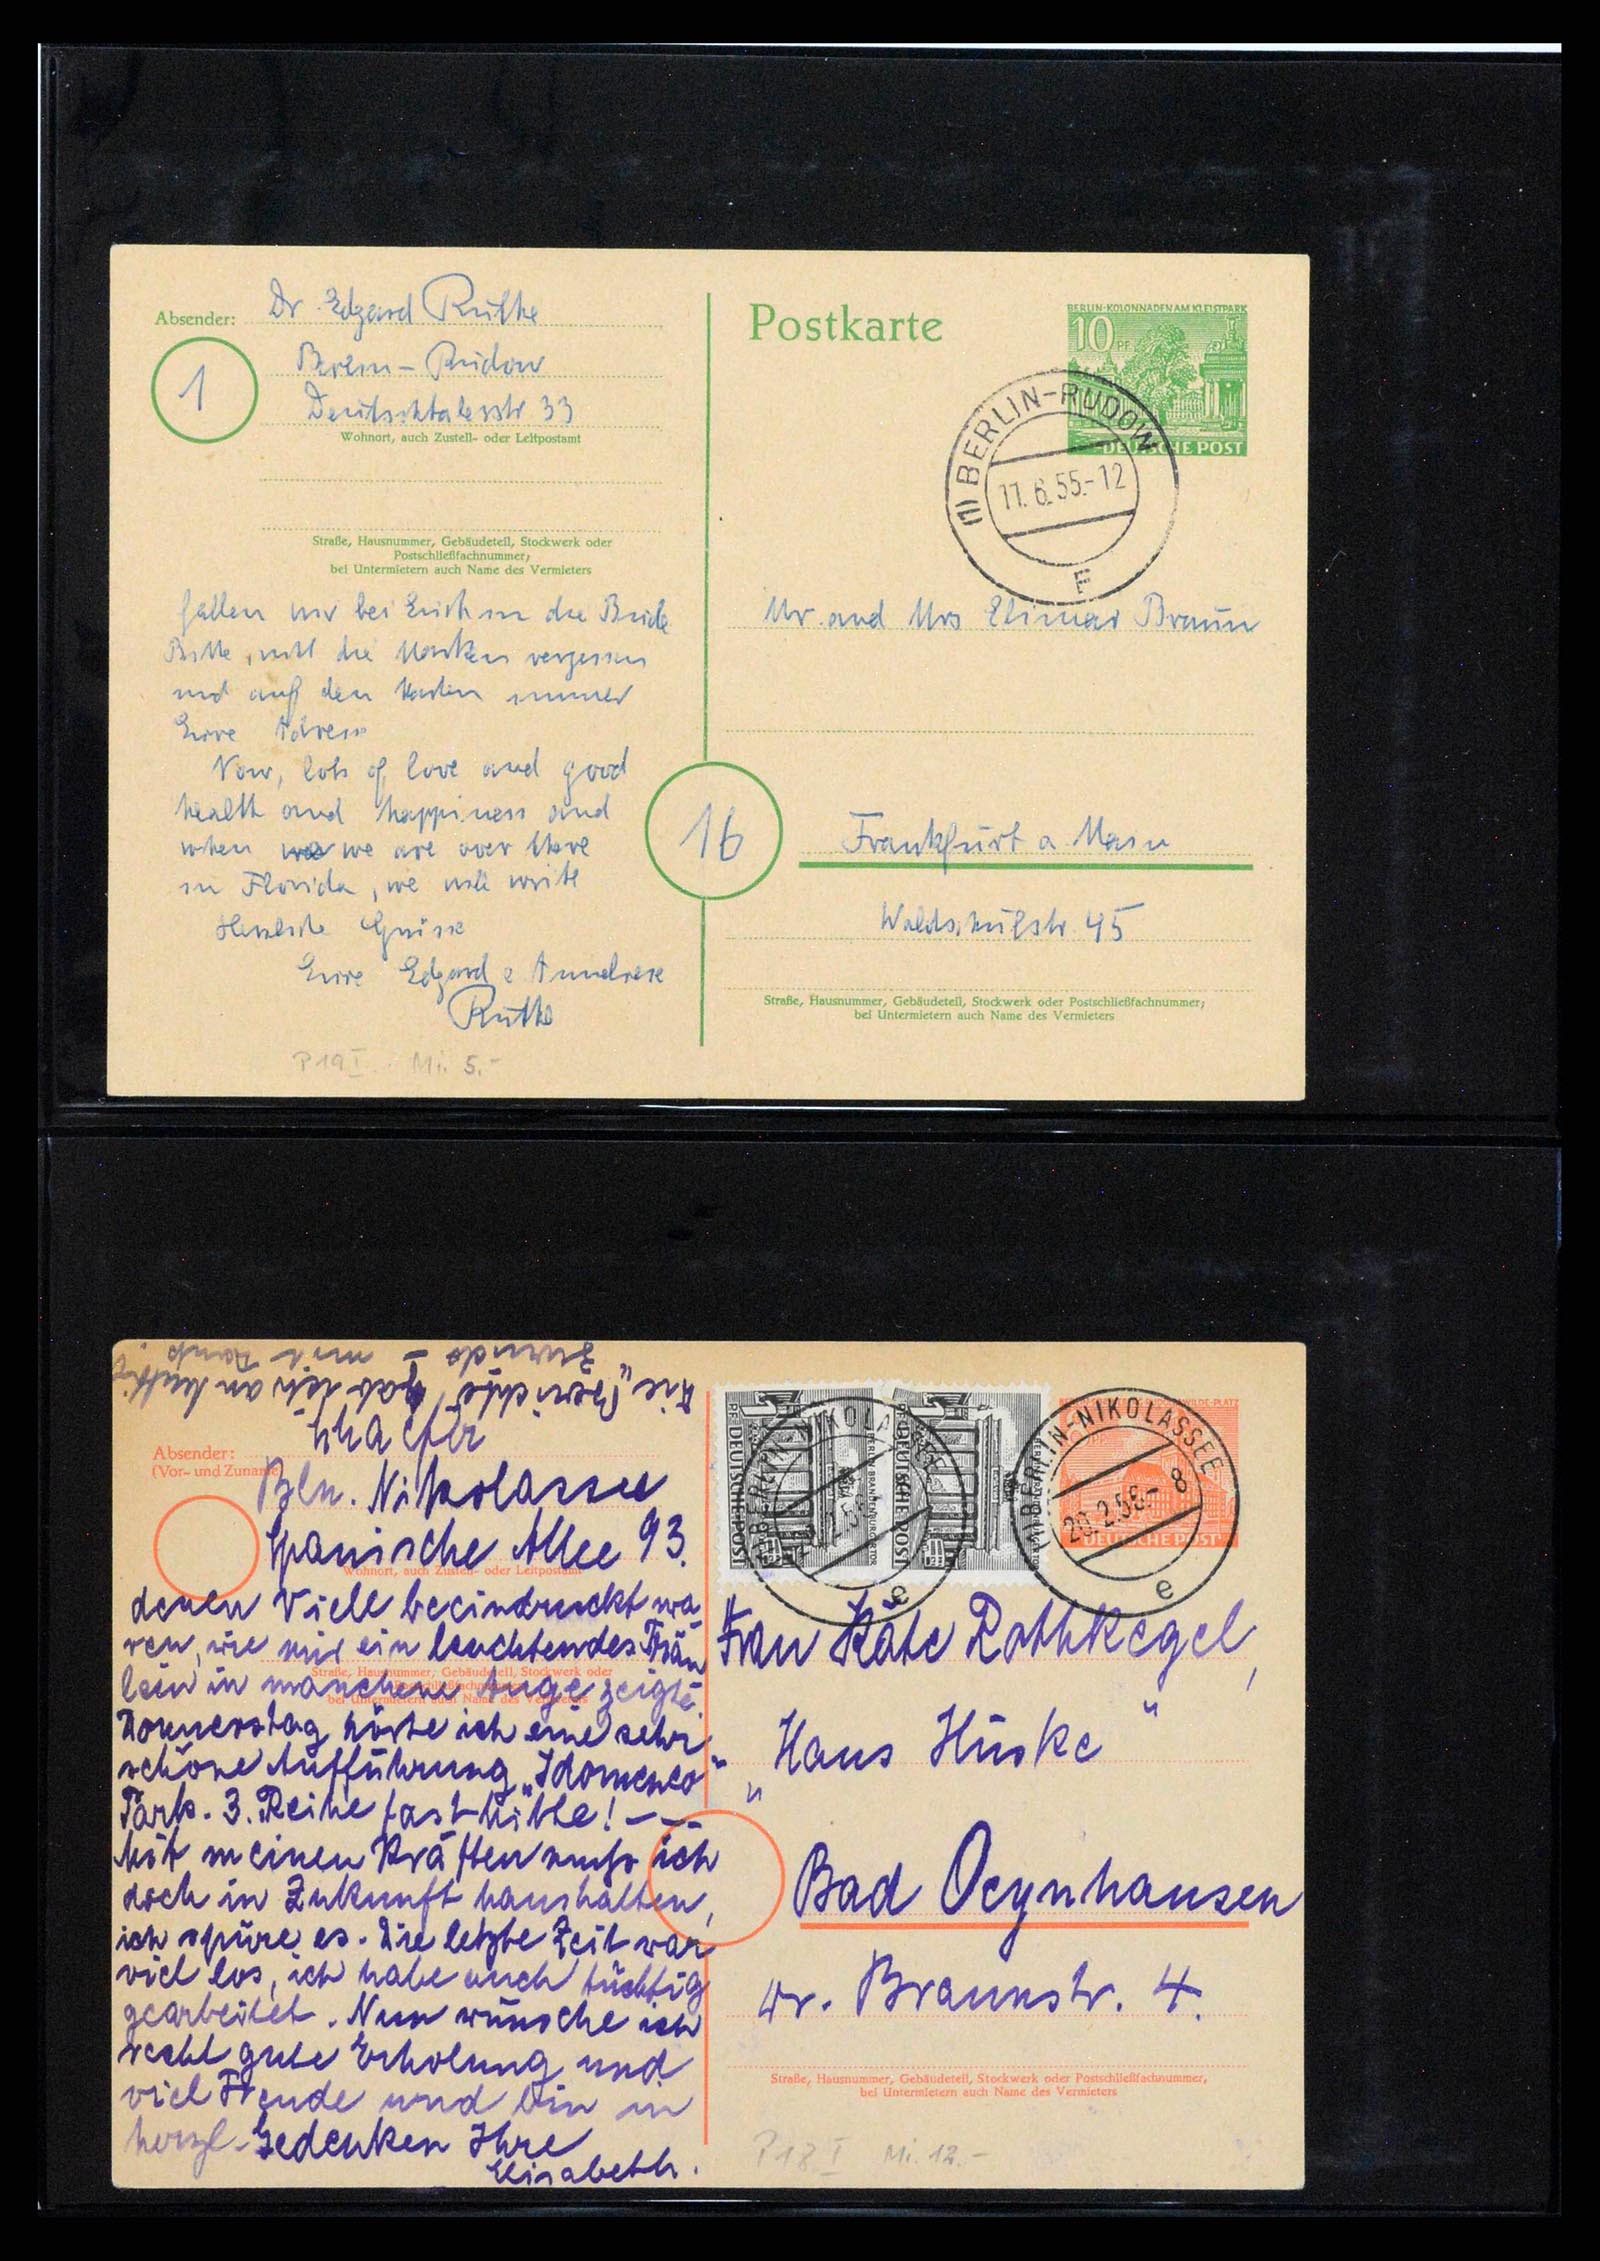 Absender: Dr Edgard Ruthe
1
Berlin-Rudow
Deutschtalerstr 33
Wohnort, auch Zustell- oder Leitpostamt
Straße, Hausnummer, Gebäudeteil, Stockwerk oder
Postschließfachnummer;
bei Untermietern auch Name des Vermieters
fallen wir bei Erich in die Bude
Bitte, nicht die Marken vergessen
und auf den Karten immer
Eure Adresse
Now, lots of love and good
health and happiness and
when we are over there
in Florida, we will write
Herzliche Grüsse
Eure Edgard e Anneliese
Ruthe
P19 I Mi. 5.-
Postkarte
BERLIN-KOLONNADEN AM KLEISTPARK
10 PF
DEUTSCHE POST
BERLIN-RUDOW
11.6.55.-12
F
Mr. and Mrs Elimar Braun
16
Frankfurt a Main
Waldschulstr. 45
Straße, Hausnummer, Gebäudeteil, Stockwerk oder Postschließfachnummer;
bei Untermietern auch Name des Vermieters
Absender:
(Vor- und Zuname)
Bln. Nikolassee
Spanische Allee 93.
Wohnort, auch Zustell- oder Leitpostamt
denen Viele beeindruckt wa
ren, wie mir ein leuchtendes Trän
lein in manchem Auge zeigte.
Straße, Hausnummer, Gebäudeteil, Stockwerk oder
Postschließfachnummer;
bei Untermietern auch Name des Vermieters
Donnerstag hörte ich eine sehr
schöne Aufführung „Idomeneo"
Park. 3. Reihe fast Mitte! - - -
Mit meinen Kräften muß ich
doch in Zukunft haushalten,
ich spüre es. Die letzte Zeit war
viel los, ich habe auch tüchtig
gearbeitet. Nun wünsche ich
recht gute Erholung und
viel Freude und bin in
herzl. Gedenken Ihre
Elisabeth.
DEUTSCHE POST
BERLIN BRANDENBURGER TOR
DEUTSCHE POST
BERLIN-NIKOLASSEE
e
BERLIN-NIKOLASSEE
20.2.58.- 8
e
DEUTSCHE POST
Frau Käte Rothkegel,
„Haus Hüske"
Bad Oeynhausen
Dr. Braunstr. 4.
Straße, Hausnummer, Gebäudeteil, Stockwerk oder Postschließfachnummer,
bei Untermietern auch Name des Vermieters
P18 I Mi. 12.-